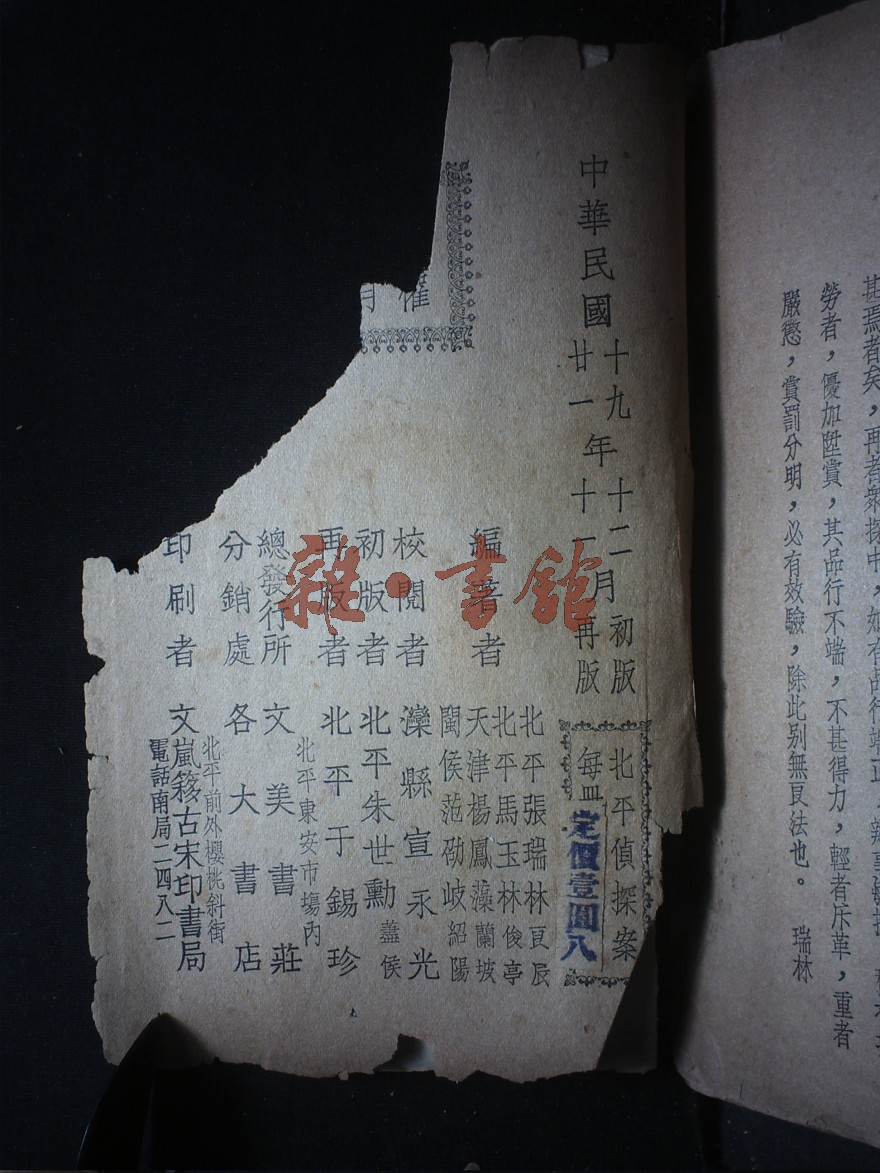 勞者，優加陞賞，其品行不端，不甚得力，輕者斥革，重者
嚴懲，賞罰分明，必有效驗，除此别無良法也。 瑞林
中華民國
十九年十二月初版
廿一年十一月再版
北平偵探案
每冊定價壹圓八
編著者
北平張瑞林良辰
北平馬玉林俊亭
天津楊鳳藻蘭坡
閩侯范劭岐紹陽
校閱者 灤縣宣永光
初版者 北平朱世勳藎侯
再版者 北平于錫珍
北平東安市場內
總發行所 文美書莊
分銷處 各大書店
北平前外櫻桃斜街
印刷者 文嵐簃古宋印書局
電話南局二四八二
雜·書館